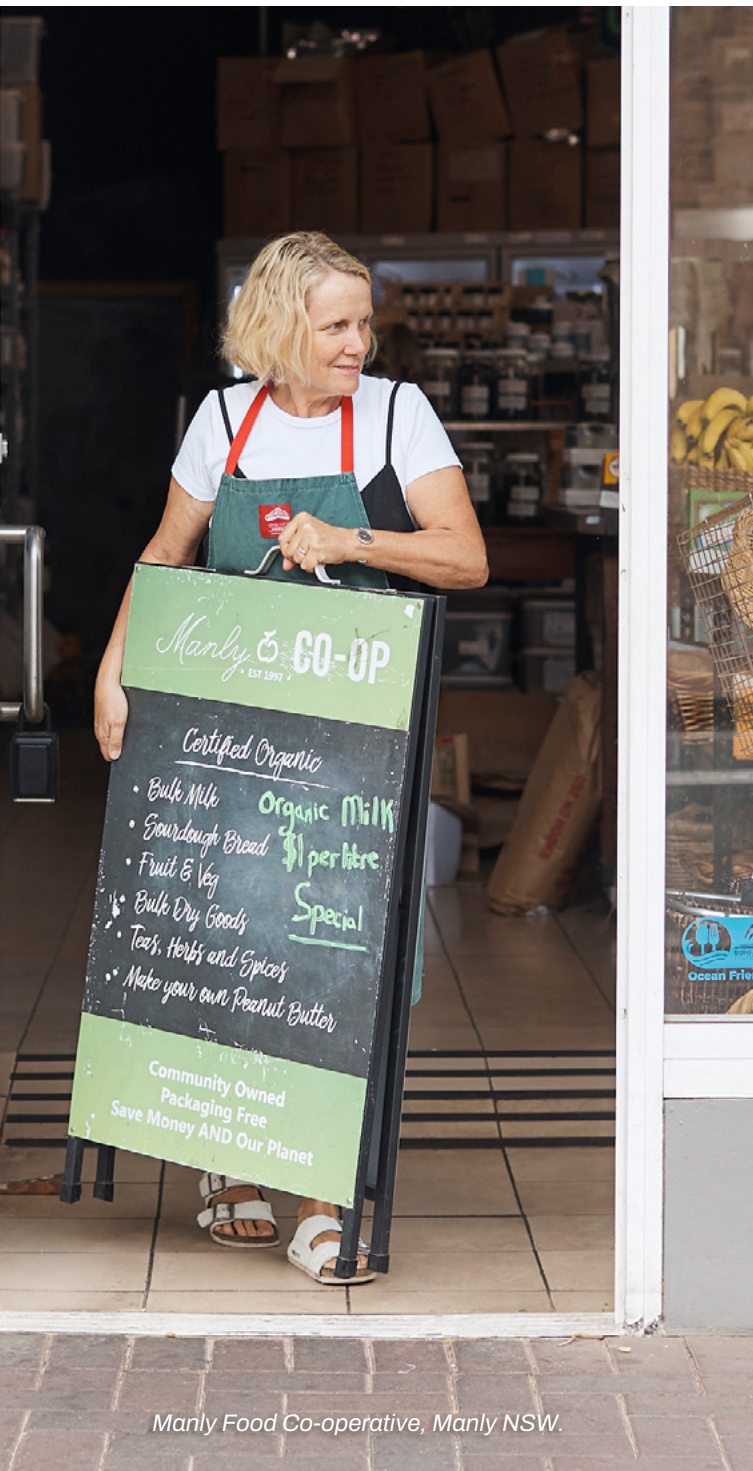 Manly CO-OP
EST 1997
Certified Organic
• Bulk Milk
• Sourdough Bread
• Fruit & Veg
• Bulk Dry Goods
• Teas, Herbs and Spices
• Make your own Peanut Butter
Organic Milk
$1 per litre
Special
Community Owned
Packaging Free
Save Money AND Our Planet
Ocean Frie
Manly Food Co-operative, Manly NSW.